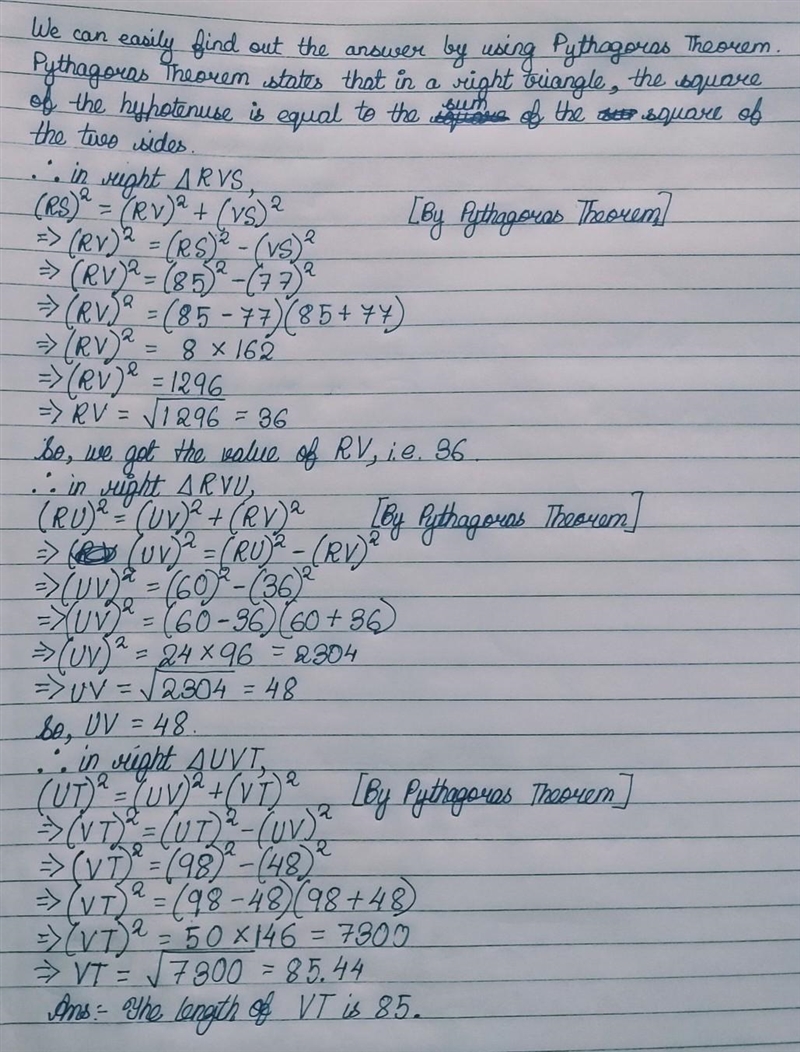 We can easily find out the answer by using Pythagoras Theorem.
Pythagoras Theorem states that in a right triangle, the square
of the hypotenuse is equal to the sum of the square of
the two sides.
∴ in right △RVS,
(RS)² = (RV)² + (VS)² [By Pythagoras Theorem]
=> (RV)² = (RS)² - (VS)²
=> (RV)² = (85)² - (77)²
=> (RV)² = (85 - 77)(85 + 77)
=> (RV)² = 8 × 162
=> (RV)² = 1296
=> RV = √1296 = 36
So, we got the value of RV, i.e. 36.
∴ in right △RVU,
(RU)² = (UV)² + (RV)² [By Pythagoras Theorem]
=> (UV)² = (RU)² - (RV)²
=> (UV)² = (60)² - (36)²
=> (UV)² = (60 - 36)(60 + 36)
=> (UV)² = 24 × 96 = 2304
=> UV = √2304 = 48
So, UV = 48.
∴ in right △UVT,
(UT)² = (UV)² + (VT)² [By Pythagoras Theorem]
=> (VT)² = (UT)² - (UV)²
=> (VT)² = (98)² - (48)²
=> (VT)² = (98 - 48)(98 + 48)
=> (VT)² = 50 × 146 = 7300
=> VT = √7300 = 85.44
Ans:- The length of VT is 85.